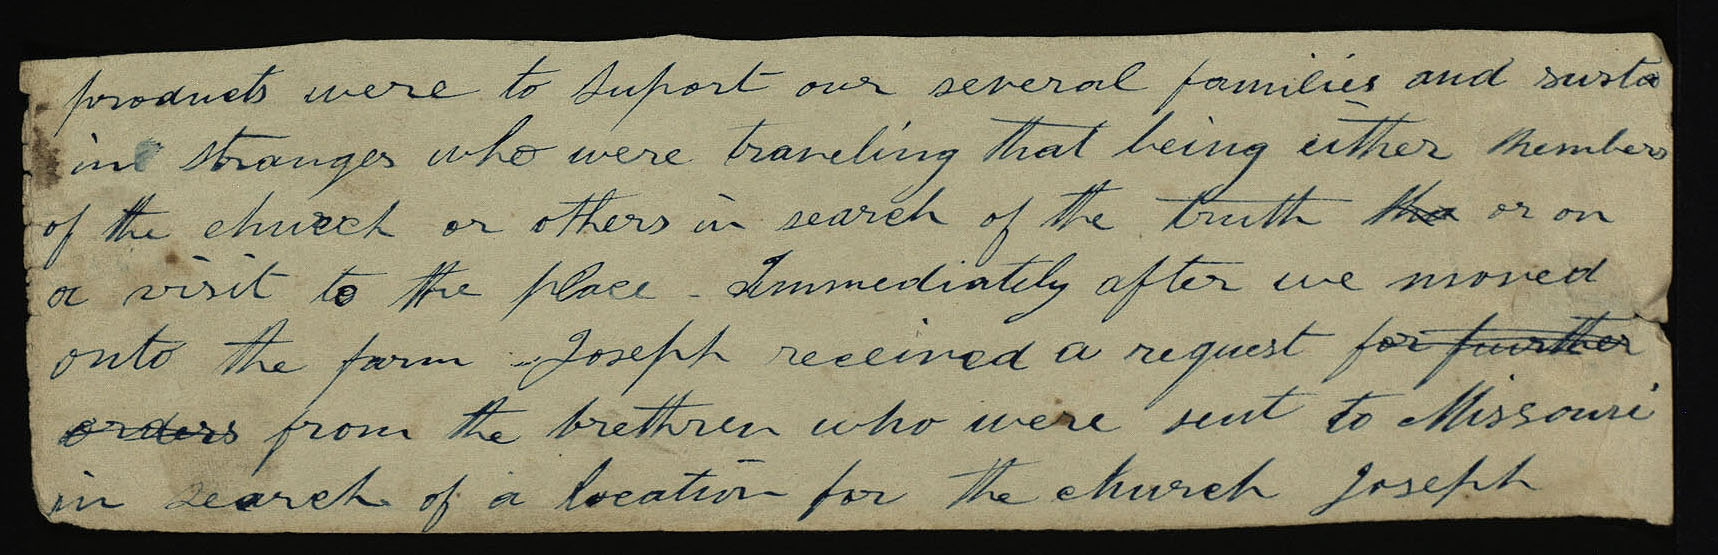 products were to suport our several families and susta
in stranges who were traveling that being either members
of the church or others in search of the truth the or on
a visit to the place - Immediately after we moved
onto the farm - Joseph received a request for further
orders from the brethren who were sent to Missouri
in search of a location for the church Joseph